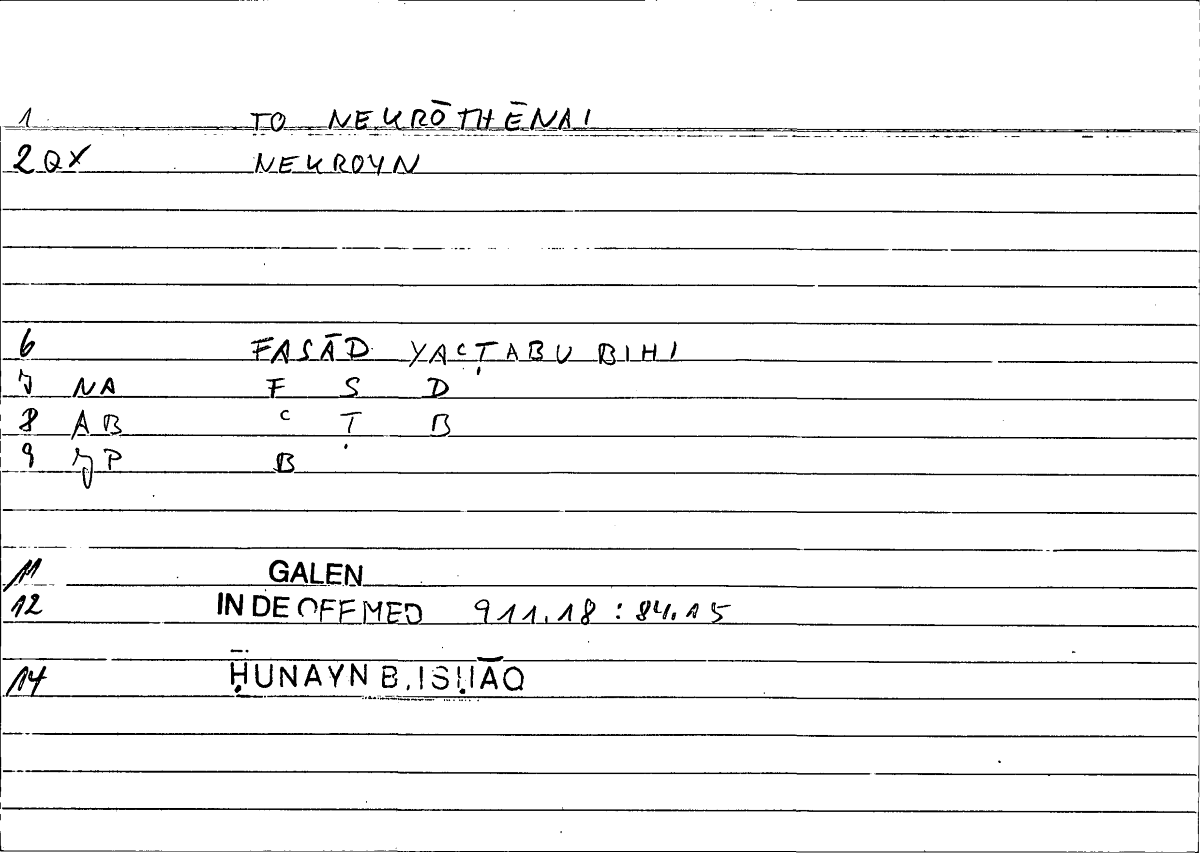 1 TO NEKRŌTHĒNAI
2 QX NEKROYN
6 FASĀD YAᶜṬABU BIHI
7 NA F S D
8 AB ᶜ Ṭ B
9 JP B
11 GALEN
12 IN DE OFF MED 911.18 : 84.15
14 ḤUNAYN B. ISḤĀQ